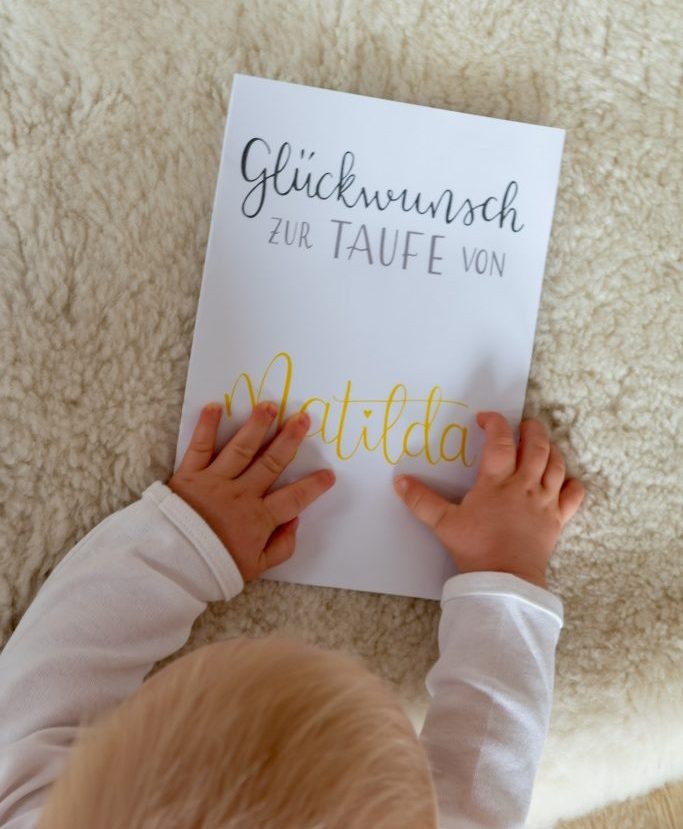 Glückwunsch
ZUR TAUFE VON
Matilda